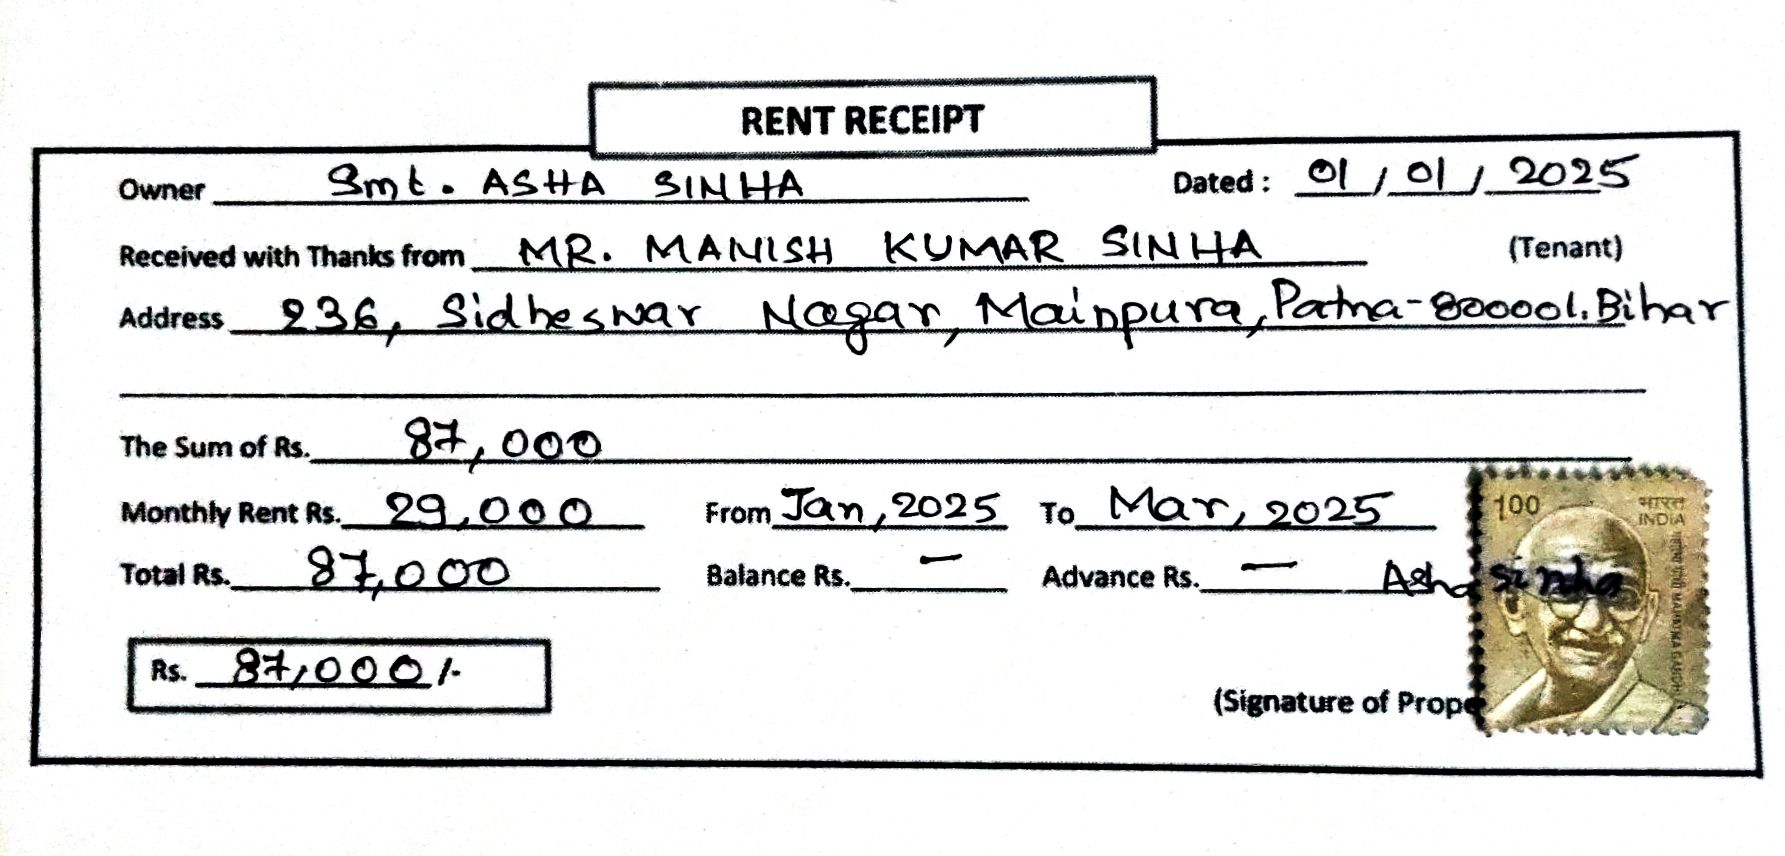 RENT RECEIPT
Owner Smt. ASHA SINHA Dated : 01/01/2025
Received with Thanks from MR. MANISH KUMAR SINHA (Tenant)
Address 236, Sidheswar Nagar, Mainpura, Patna-800001. Bihar
The Sum of Rs. 87,000
Monthly Rent Rs. 29,000 From Jan, 2025 To Mar, 2025
100 भारत
INDIA
Total Rs. 87,000 Balance Rs. — Advance Rs. — Asha sinha
Rs. 87,000/-
(Signature of Prope